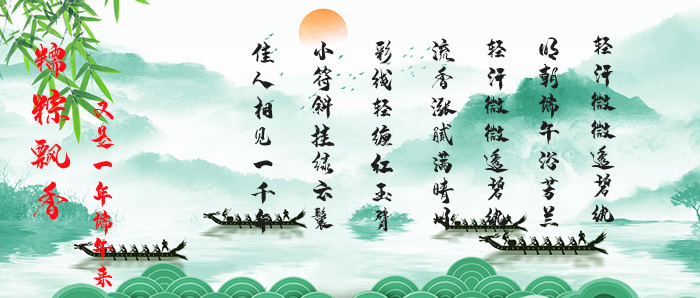 轻汗微微透碧纨
明朝端午浴芳兰
轻汗微微透碧纨
流香涨腻满晴川
彩线轻缠红玉臂
小符斜挂绿云鬟
佳人相见一千年
又是一年端午来
糯粽飘香